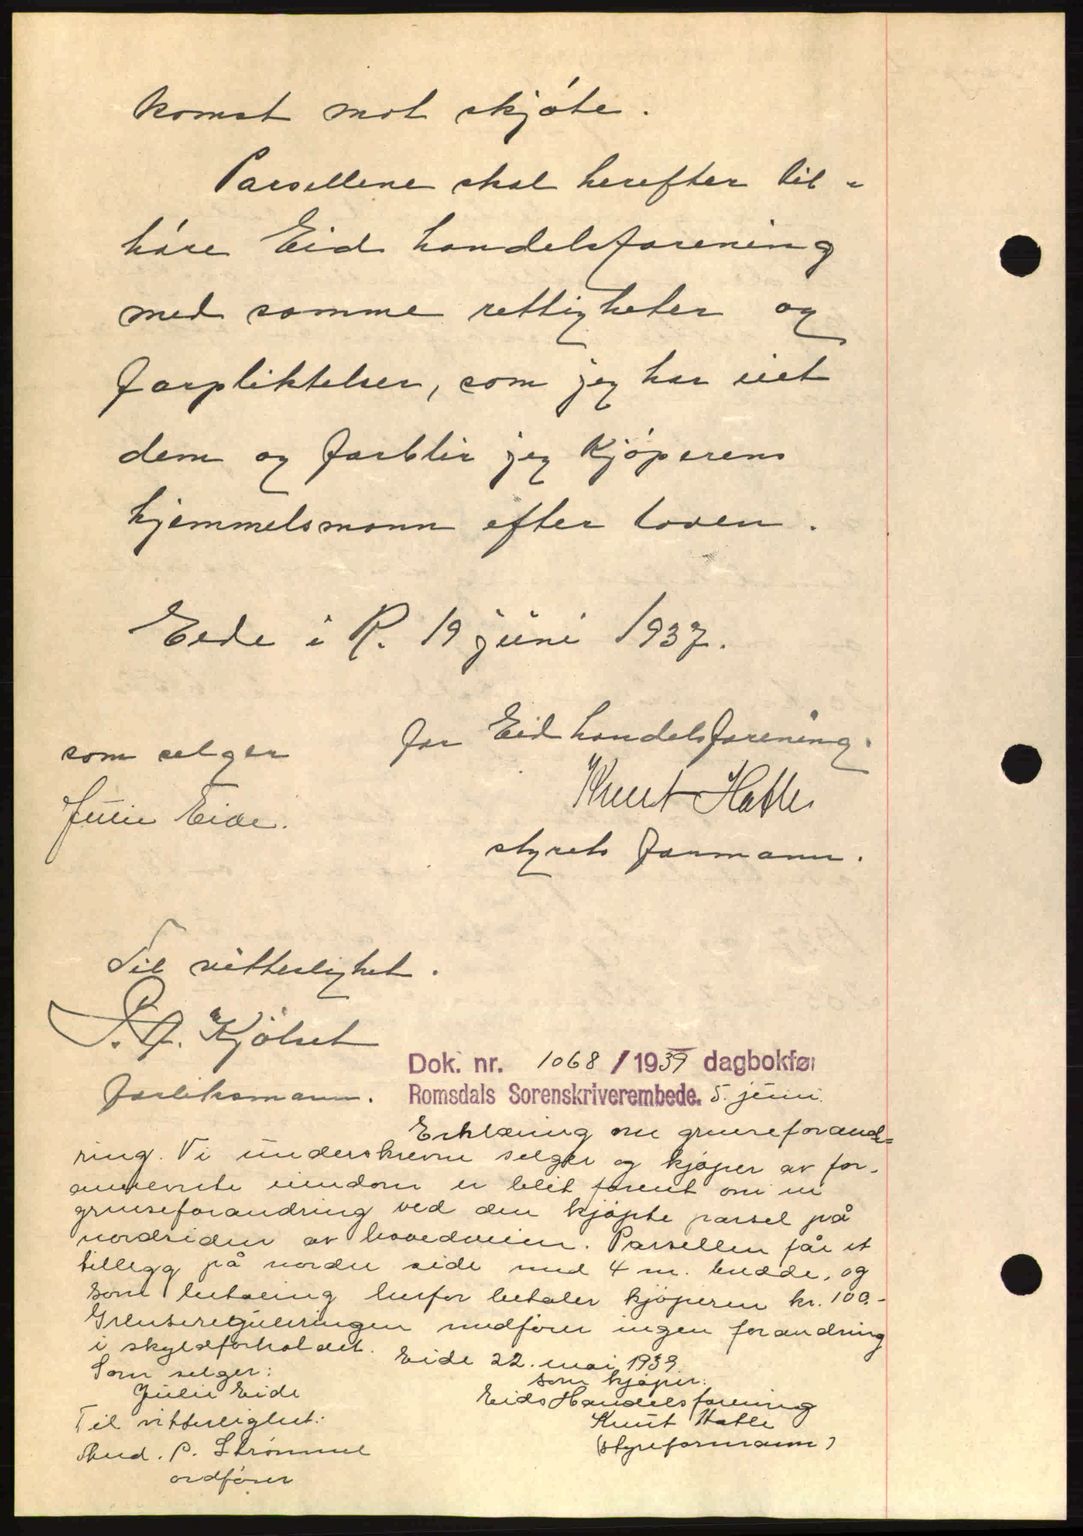 komst mot skjóte.
Parsellene skal herefter til-
höre Eid handelsforening
med samme rettigheter og
forpliktelser, som jeg har eiet
dem og forblir jeg kjöperens
hjemmelsmann efter loven.
Eide i R. 19 juni 1937.
for Eid handelsforening.
som selger
Knut Hatle
Julie Eide.
styrets formann.
Til vitterlighet.
P. A. Kjölset
forliksmann.
Dok. nr. 1068/1939 dagbokfør
Romsdals Sorenskriverembede. 5. juni.
Erklæring om grenseforand-
ring. Vi underskrevne selger og kjøper av for-
annevnte eiendom er blit forent om en
grenseforandring ved den kjøpte parsel på
nordsiden av hovedveien. Parsellen får et
tillegg på nordre side med 4 m. bredde, og
som betaling herfor betaler kjøperen kr. 100.-
Grensereguleringen medfører ingen forandring
i skyldforholdet. Eide 22. mai 1939.
Som selger:
som kjøper:
Julie Eide
Eids Handelsforening
Til vitterlighet:
Knut Hatle
P. Strømme
(styreformann)
ordfører